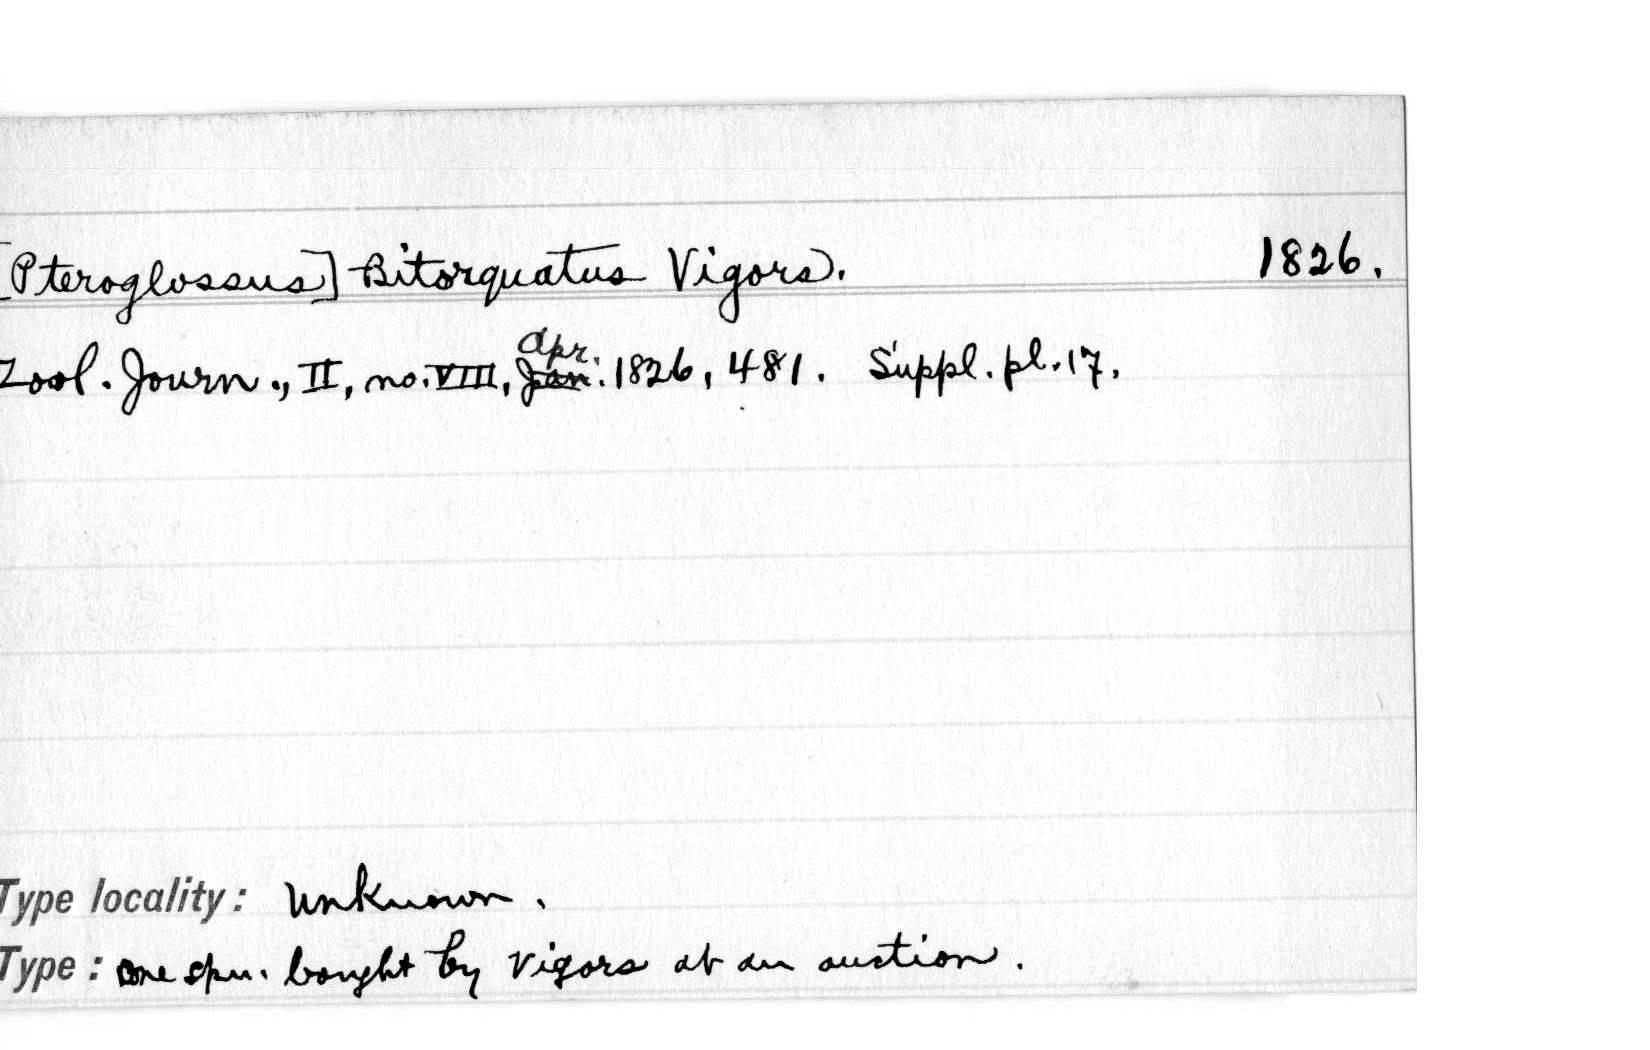 [Pteroglossus] Bitorquatus Vigors. 1826.
Apr.
Zool. Journ., II, no. VIII, Jan. 1826, 481. Suppl. pl. 17.
Type locality: Unknown.
Type: one spm. bought by Vigors at an auction.